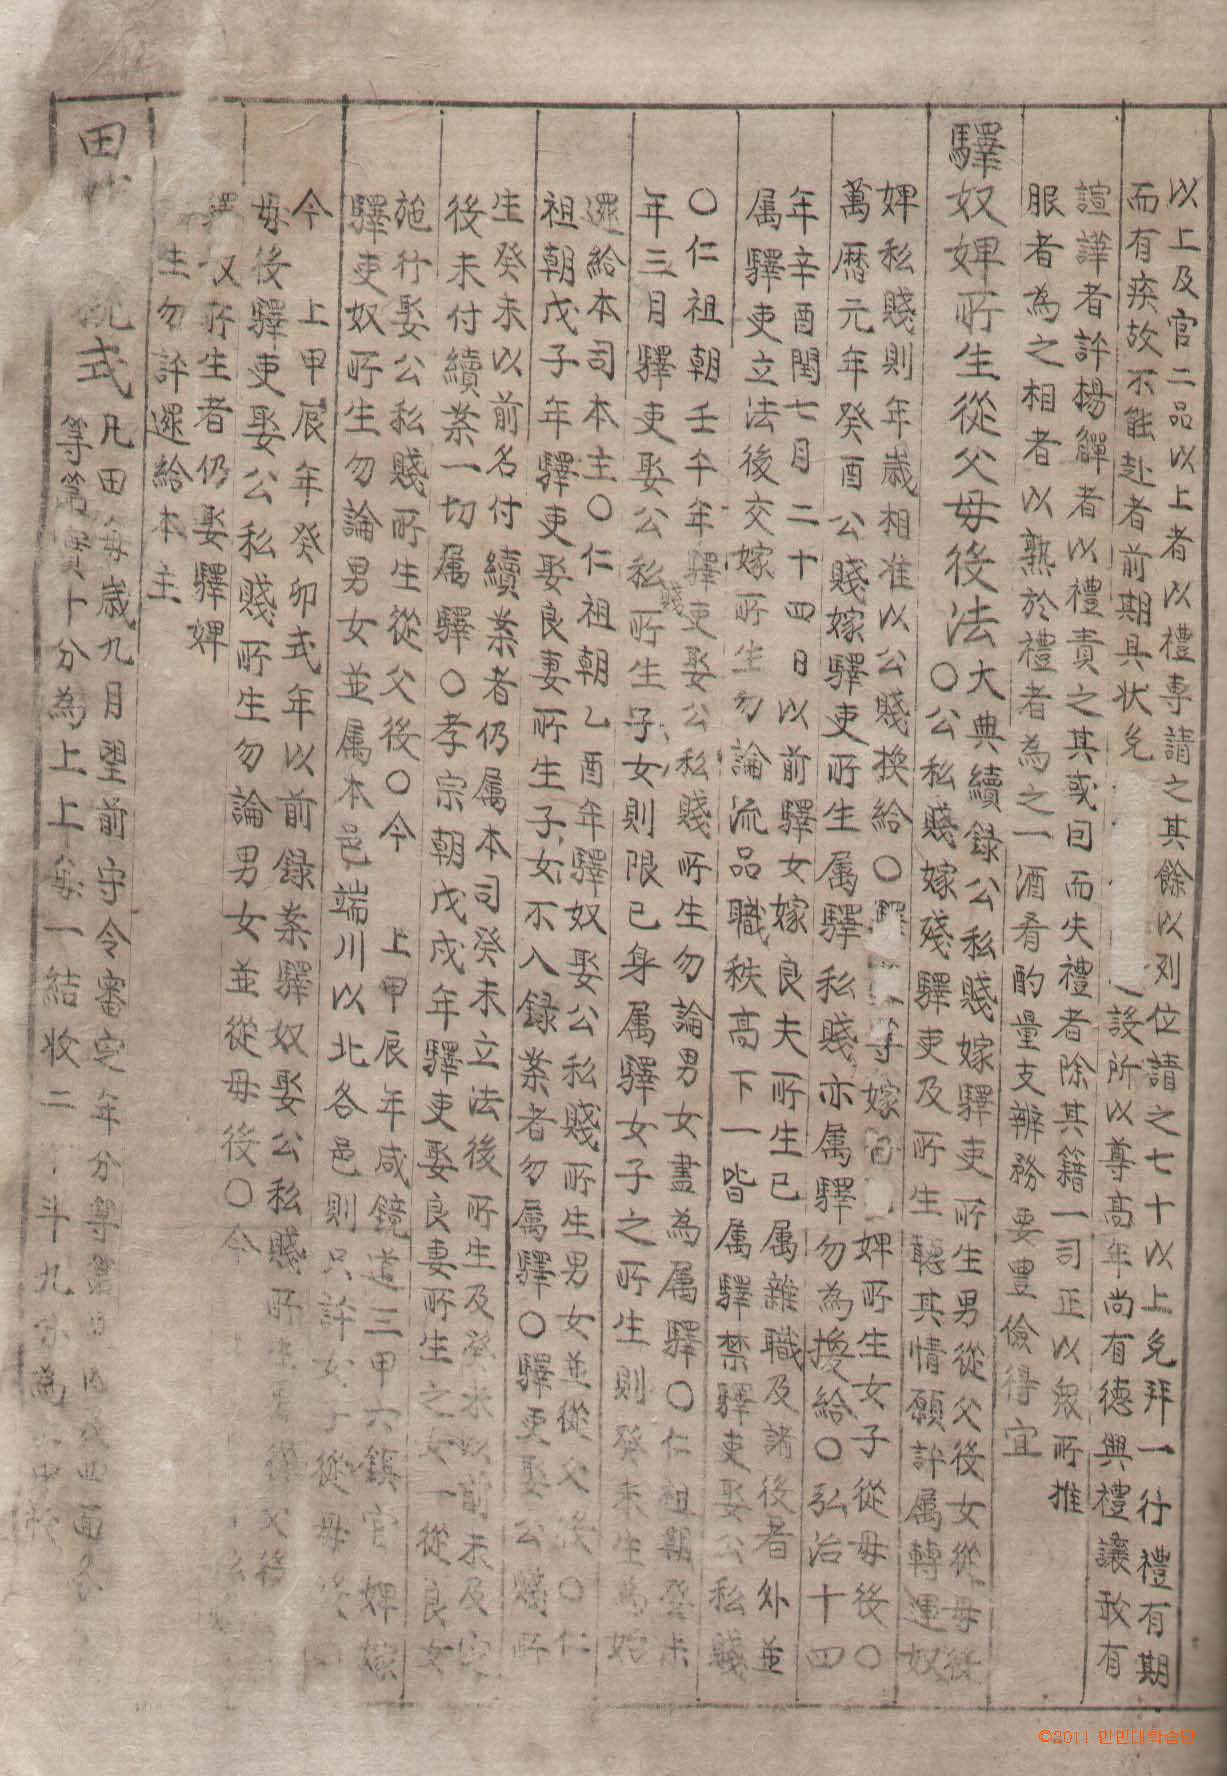 以上及官二品以上者以禮專請之其餘以列位請之七十以上免拜一行禮有期
而有疾故不能赴者前期具狀免
設所以尊高年尚有德興禮讓敢有
諠譁者許楊觶者以禮責之其或因而失禮者除其籍一司正以衆所推
服者為之相者以熟於禮者為之一酒肴酌量支辨務要豊儉得宜
驛奴婢所生從父母後法
大典續録公私賤嫁驛吏所生男從父役女從母役
〇公私賤嫁殘驛吏及所生聽其情願許属轉運奴
婢私賤則年歲相准以公賤換給〇驛
等嫁
婢所生女子從母後〇
萬曆元年癸酉公賤嫁驛吏所生属驛私賤亦属驛勿為換給〇弘治十四
年辛酉閏七月二十四日以前驛女嫁良夫所生已属雜職及諸後者外並
属驛吏立法後交嫁所生勿論流品職秩高下一皆属驛禁驛吏娶公私賤
〇仁祖朝壬午年驛吏娶公私賤所生勿論男女盡為属驛〇仁祖朝癸未
年三月驛吏娶公私賤所生子女則限已身属驛女子之所生則癸未生為始
還給本司本主〇仁祖朝乙酉年驛奴娶公私賤所生男女並從父後〇仁
祖朝戊子年驛吏娶良妻所生子女不入録案者勿属驛〇驛吏娶公賤所
生癸未以前名付續案者仍属本司癸未立法後所生及癸未以前未及
後未付續案一切属驛〇孝宗朝戊戌年驛吏娶良妻所生之女一從良女
施行娶公私賤所生從父後〇今 上甲辰年咸鏡道三甲六鎮官婢嫁
驛吏奴所生勿論男女並属本邑端川以北各邑則只許女子從母
今 上甲辰年癸卯式年以前録案驛奴娶公私賤所生男從父後
母後驛吏娶公私賤所生勿論男女並從母後〇今
奴所生者仍娶驛婢
生勿許還給本主
田
式
凡田每歲九月望前守令審定年分等第
四面
等第實十分為上上年一結收二
斗九分為